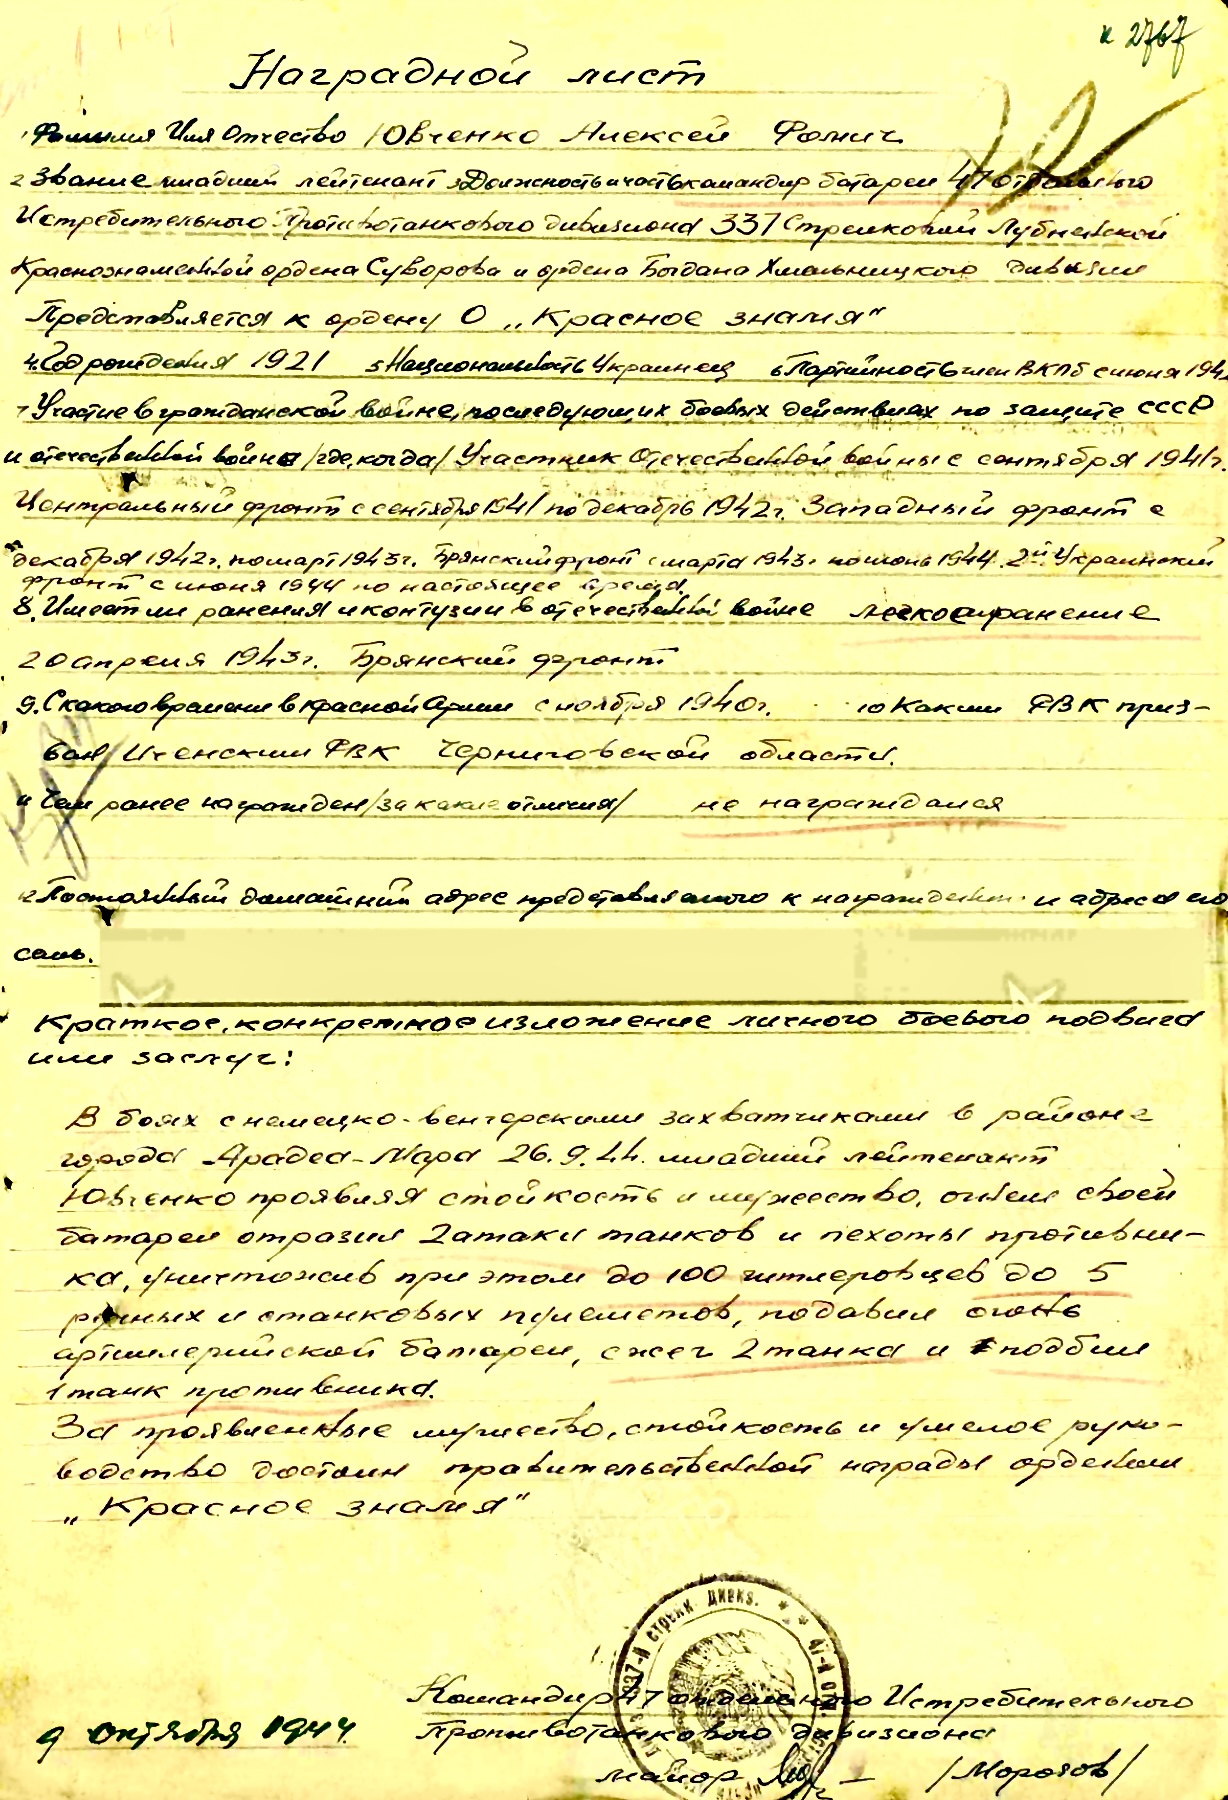 и 2767
Наградной лист
1 Фамилия Имя Отчество Ювченко Алексей Фомич
2 Звание младший лейтенант 3 Должность и часть командир батареи 47 отдельного
Истребительного Противотанкового дивизиона 337 Стрелковой Лубненской
Краснознаменной ордена Суворова и ордена Богдана Хмельницкого дивизии
Представляется к ордену О „Красное знамя"
4. Год рождения 1921 5 Национальность Украинец 6 Партийность член ВКПб с июня 194
7 Участие в гражданской войне, последующих боевых действиях по защите СССР
и отечественной войне /где, когда/ Участник Отечественной войны с сентября 1941г.
Центральный фронт с сентября 1941 по декабрь 1942г. Западный фронт с
декабря 1942г. по март 1943г. Брянский фронт с марта 1943г по июнь 1944. 2й Украинский
фронт с июня 1944 по настоящее время.
8. Имеет ли ранения и контузии в отечественной войне легкое ранение
20 апреля 1943г. Брянский фронт
9. С какого времени в красной Армии с ноября 1940г. 10 Каким РВК приз-
ван Иченским РВК Черниговской области.
11 Чем ранее награжден /за какие отличия/ не награждался
12 Постоянный домашний адрес представляемого к награждению и адрес его
семь.
Краткое, конкретное изложение личного боевого подвига
или заслуг:
В боях с немецко-венгерскими захватчиками в районе
города Арадеа-Мара 26.9.44. младший лейтенант
Ювченко проявляя стойкость и мужество, огнем своей
батареи отразил 2 атаки танков и пехоты противни-
ка, уничтожив при этом до 100 гитлеровцев до 5
ручных и станковых пулеметов, подавил огонь
артиллерийской батареи, сжег 2 танка и подбил
1 танк противника.
За проявленные мужество, стойкость и умелое руко-
водство достоин правительственной награды орденом
„Красное знамя"
337-й стрелк. дивиз. * * 47-й отд.
Командир 47 отдельного Истребительного
9 октября 1944 Противотанкового дивизиона
майор /Морозов/